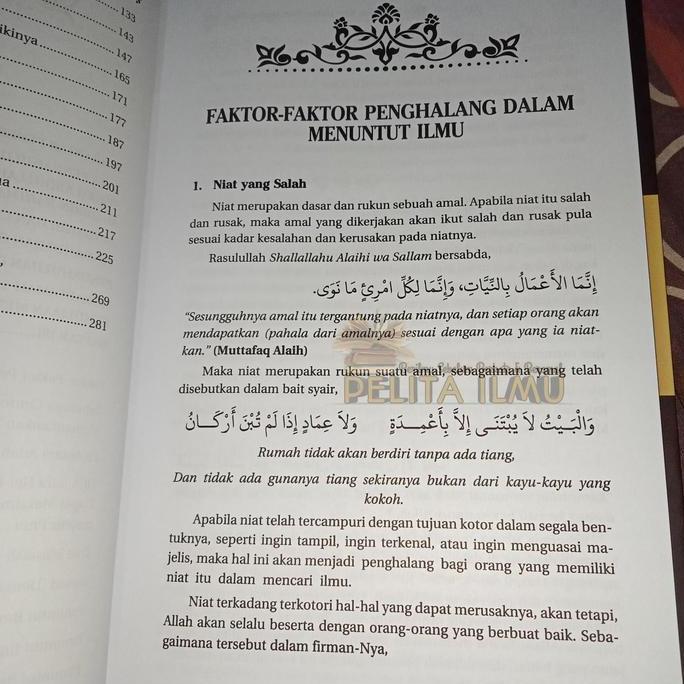 133
143
ikinya 147
165
171
177
187
197
201
211
217
225
269
281
FAKTOR-FAKTOR PENGHALANG DALAM
MENUNTUT ILMU
1. Niat yang Salah
Niat merupakan dasar dan rukun sebuah amal. Apabila niat itu salah
dan rusak, maka amal yang dikerjakan akan ikut salah dan rusak pula
sesuai kadar kesalahan dan kerusakan pada niatnya.
Rasulullah Shallallahu Alaihi wa Sallam bersabda,
إِنَّمَا الأَعْمَالُ بِالنِّيَّاتِ، وَإِنَّمَا لِكُلِّ امْرِئٍ مَا نَوَى.
“Sesungguhnya amal itu tergantung pada niatnya, dan setiap orang akan
mendapatkan (pahala dari amalnya) sesuai dengan apa yang ia niat-
kan.” (Muttafaq Alaih)
Maka niat merupakan rukun suatu amal, sebagaimana yang telah
disebutkan dalam bait syair,
PELITA ILMU
وَالْبَيْتُ لاَ يُبْتَنَى إِلاَّ بِأَعْمِدَةٍ وَلاَ عِمَادٍ إِذَا لَمْ تُبْنَ أَرْكَانُ
Rumah tidak akan berdiri tanpa ada tiang,
Dan tidak ada gunanya tiang sekiranya bukan dari kayu-kayu yang
kokoh.
Apabila niat telah tercampuri dengan tujuan kotor dalam segala ben-
tuknya, seperti ingin tampil, ingin terkenal, atau ingin menguasai ma-
jelis, maka hal ini akan menjadi penghalang bagi orang yang memiliki
niat itu dalam mencari ilmu.
Niat terkadang terkotori hal-hal yang dapat merusaknya, akan tetapi,
Allah akan selalu beserta dengan orang-orang yang berbuat baik. Seba-
gaimana tersebut dalam firman-Nya,